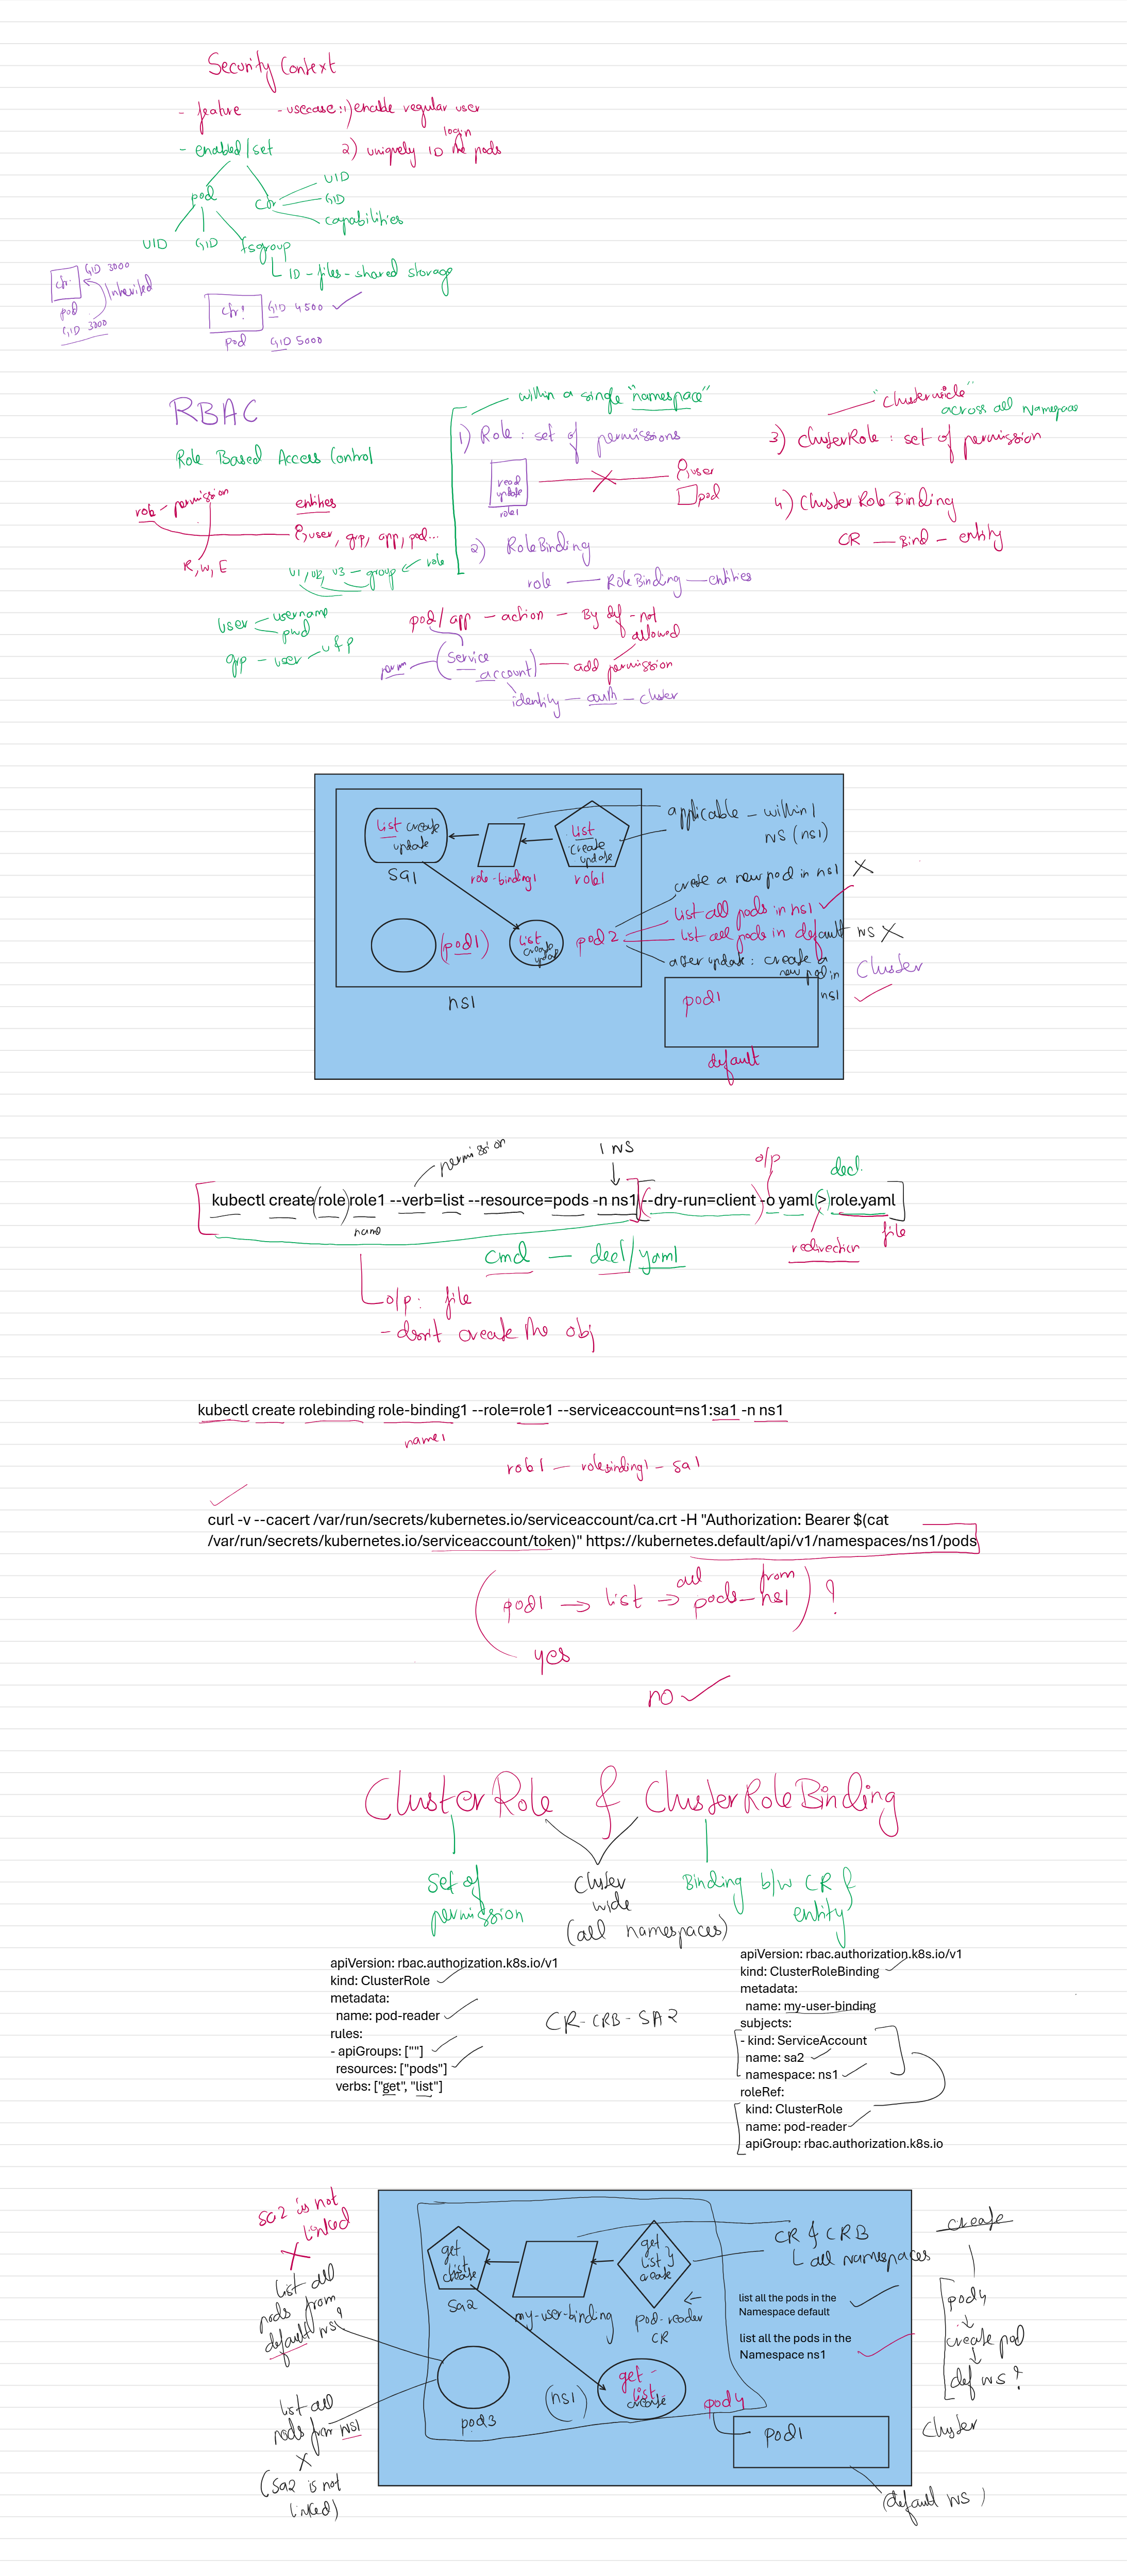 Security Context
- feature - usecase: 1) enable regular user
login
- enabled/set 2) uniquely ID the pods
pod ctr
UID
GID
capabilities
UID GID fsgroup
ID - files - shared storage
ctr. GID 3000
Inherited
pod
GID 3000
ctr1 GID 4500
pod GID 5000
RBAC
Role Based Access Control
role - permission
entities
user, grp, app, pod...
R, W, E
U1, U2, U3 - group role
user - username
pwd
grp - user - u & p
within a single "namespace"
1) Role : set of permissions
read
update
role1
user
pod
2) RoleBinding
role - RoleBinding - entities
"clusterwide"
across all namespace
3) clusterRole : set of permission
4) Cluster Role Binding
CR - Bind - entity
pod / app - action - By def - not
allowed
perm - (service
account) - add permission
identity - auth - cluster
list create
update
sa1
role-binding1
list
create
update
role1
applicable - within 1
NS (ns1)
create a new pod in ns1 X
list all pods in ns1
list all pods in default NS X
after update : create a
new pod in
ns1
(pod1)
list
create
update
pod 2
Cluster
ns1
pod1
default
permission
1 NS
o/p
decl.
kubectl create role role1 --verb=list --resource=pods -n ns1 --dry-run=client -o yaml > role.yaml
name
redirection
file
cmd - decl/yaml
o/p : file
- don't create the obj
kubectl create rolebinding role-binding1 --role=role1 --serviceaccount=ns1:sa1 -n ns1
name1
role1 - rolebinding1 - sa1
curl -v --cacert /var/run/secrets/kubernetes.io/serviceaccount/ca.crt -H "Authorization: Bearer $(cat
/var/run/secrets/kubernetes.io/serviceaccount/token)" https://kubernetes.default/api/v1/namespaces/ns1/pods
all from
(pod1 → list → pods - ns1) ?
yes
no
ClusterRole & ClusterRoleBinding
set of
permission
Cluster
wide
(all namespaces)
Binding b/w CR &
entity
apiVersion: rbac.authorization.k8s.io/v1
kind: ClusterRole
metadata:
name: pod-reader
rules:
- apiGroups: [""]
resources: ["pods"]
verbs: ["get", "list"]
CR - CRB - SA2
apiVersion: rbac.authorization.k8s.io/v1
kind: ClusterRoleBinding
metadata:
name: my-user-binding
subjects:
- kind: ServiceAccount
name: sa2
namespace: ns1
roleRef:
kind: ClusterRole
name: pod-reader
apiGroup: rbac.authorization.k8s.io
sa2 is not
linked
X
list all
pods from
default ns?
list all
pods from NS1
X
(sa2 is not
linked)
get
list
create
sa2
my-user-binding
get
list
create
pod-reader
CR
CR & CRB
all namespaces
list all the pods in the
Namespace default
list all the pods in the
Namespace ns1
pod3
(ns1)
get -
list
create
pod4
pod1
create
pod4
↓
create pod
↓
def ns ?
Cluster
(default NS)